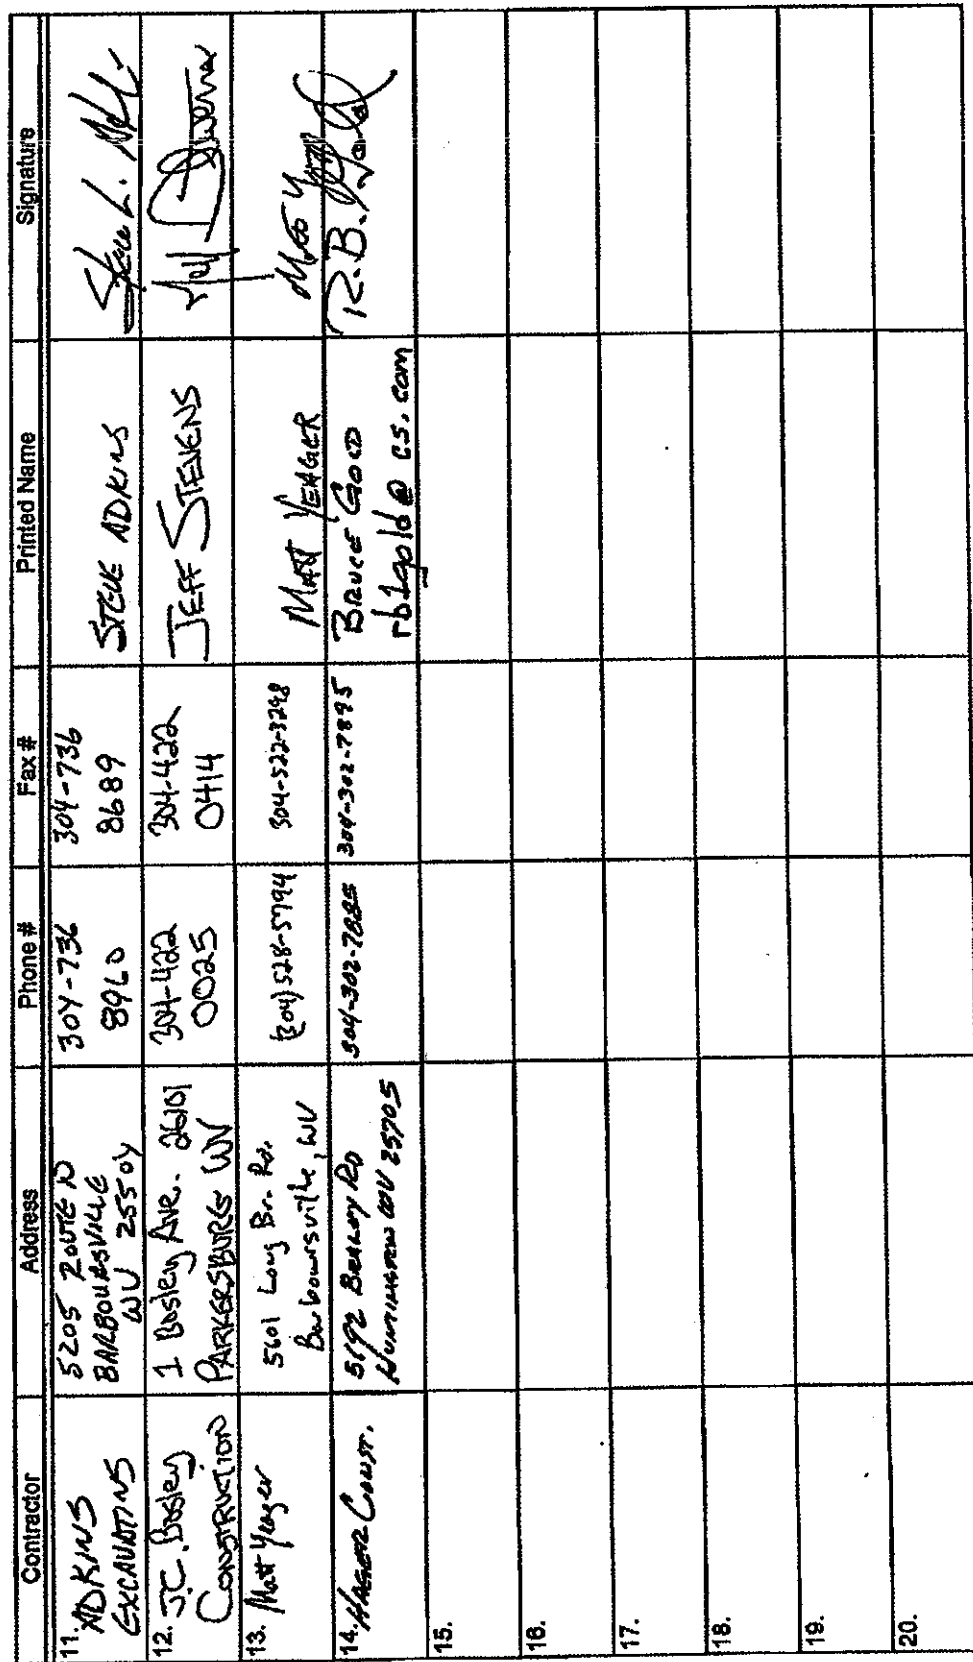 Contractor Address Phone # Fax # Printed Name Signature
11. ADKINS EXCAVATIONS
5205 ROUTE
BARBOURSVILLE
WV 25504
304-736
8960
304-736
8689
STEVE ADKINS
Steve L.
12. J.C. Bosley
CONSTRUCTION
1 Bosley Ave. 26101
PARKERSBURG WV
304-422
0025
304-422
0414
JEFF STEVENS
13. Matt Yeager
5601 Long Br. Rd.
Barboursville, WV
(304) 528-5794
304-522-3248
MATT YEAGER
14. HAGER CONST.
HUNTINGTON WV 25705
304-302-7885
304-302-7895
BRUCE GOLD
rb1gold@cs.com
R.B. Gold
15.
16.
17.
18.
19.
20.